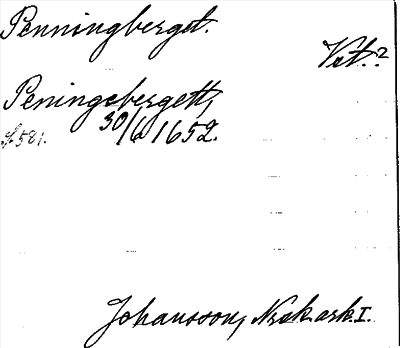 Penningberget.
Vst.?
Peningsbergett,
30/6 1652.
s. 581.
Johansson, Noraskog ark. I.